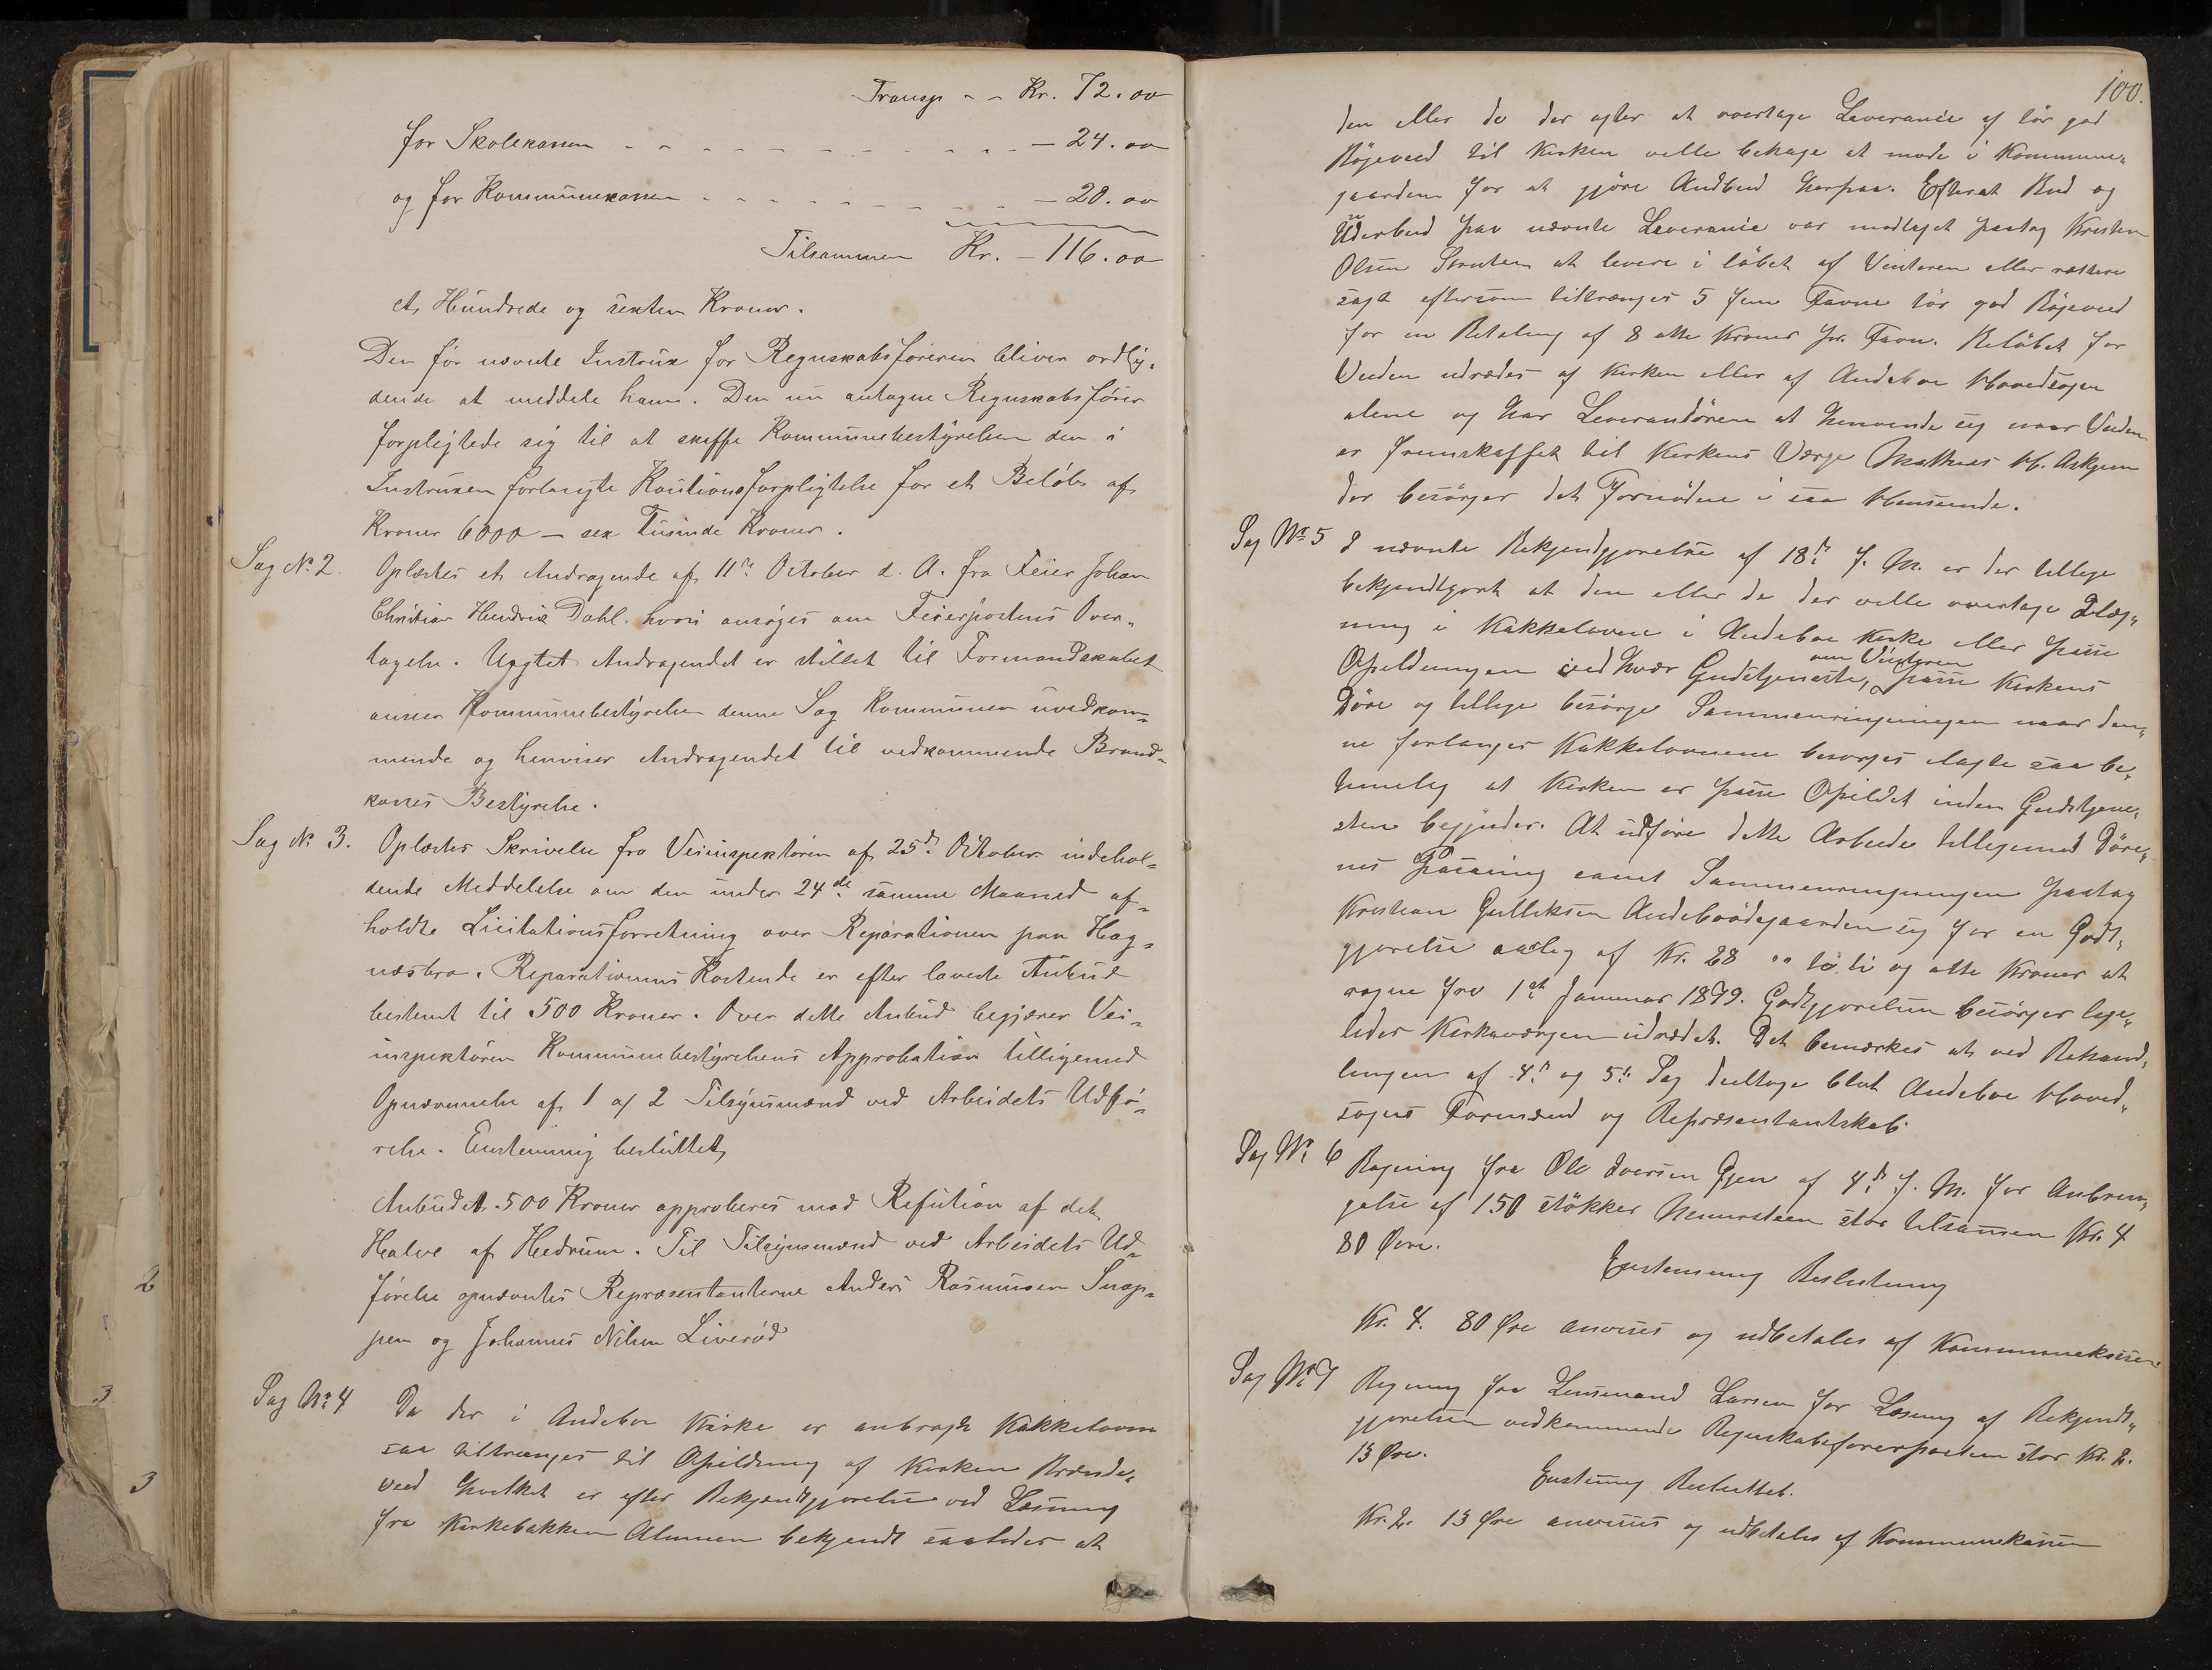 Transp - - Kr. 72.00
for Skolekassen - - - - - - - - - - - - - 24.00
og for Kommunekassen - - - - - - - - - - 20.00
Tilsammen Kr. - 116.00
et Hundrede og sexten Kroner.
Den før nævnte Instrux for Regnskabsføreren bliver ordly-
dende at meddele ham. Den nu antagne Regnskabsfører
forpligtede sig til at skaffe Kommunebestyrelsen den i
Instruxen forlangte Kautionsforpligtelse for et Beløb af
Kroner 6000 - sex Tusinde Kroner.
Sag No 2. Oplæstes et Andragende af 11te October d. A. fra Feier Johan
Christian Hendrik Dahl. hvori ansøges om Feierpostens Over-
tagelse. Uagtet Andragendet er stillet til Formandskabet
anseer Kommunebestyrelsen denne Sag Kommunen uvedkom-
mende og henviser Andragendet til vedkommende Brand-
kasses Bestyrelse.
Sag No 3. Oplæstes Skrivelse fra Veiinspektøren af 25de Oktober indehol-
dende Meddelelse om den under 24de samme Maaned af-
holdte Licitationsforretning over Reparationen paa Hag-
næsbro. Reparationens Kostende er efter lavede Anbud
bestemt til 500 Kroner. Over dette Anbud begjærer Vei-
inspektøren Kommunebestyrelsens Approbation tilligemed
Opnævnelse af 1 a 2 Tilsynsmænd ved Arbeidets Udfø-
relse. Enstemmig besluttet,
Anbudet 500 Kroner approberes mod Refusion af det
Halve af Hedrum. Til Tilsynsmænd ved Arbeidets Ud-
førelse opnævntes Repræsentanterne Anders Rasmussen Snap-
pen og Johannes Nilsen Liverød
Sag No 4 Da der i Andeboe Kirke er anbragt Kakkelovne
saa tiltrænges til Opildning af Kirken Brænde-
veed hvilket er efter Bekjendtgjørelse ved Læsning
fra Kirkebakken Almuen bekjendt saaledes at
100.
den eller de der agter at overtage Leverance af tør god
Bøgeveed til Kirken velle behage at møde i Kommune-
gaarden for at gjøre Andbud herpaa. Efterat Bud og
Underbud paa nævnte Leverance var modtaget paatog Kristen
Olsen at levere i løbet af Vinteren eller rettere
sagt eftersom tiltrænges 5 fem Favne tør god Bøgeveed
for en Betaling af 8 otte Kroner pr. Favn. Beløbet for
Veden udredes af Kirken eller af Andeboe Hovedsogn
alene og har Leverandøren at henvende sig naar Veden
er fremskaffet til Kirkens Værge Mathias H. Askjem
der besørger det Fornødne i saa Henseende.
Sag No 5 I nævnte Bekjendtgjørelse af 18de f. M. er der tillige
bekjendtgjort at den eller de der velle overtage Ilæg-
ning i Kakkelovne i Andeboe Kirke eller passe
Opildningen ved hver Gudstjeneste, om Vinteren passe Kirkens
Døre og tillige besørge Sammenringningen naar den-
ne forlanges Kakkelovnene besørges ilagte saa be-
timelig at Kirken er passe Opildet inden Gudstjene-
sten begynder. At udføre dette Arbeide tilligemed Døre-
nes Passning samt Sammenringningen paatog
Kristian Gulliksen Andeboødegaarden sig for en Godt-
gjørelse aarlig af Kr. 28 = to ti og otte Kroner at
regne fra 1ste Januar 1879. Godtgjørelsen besørger lige-
ledes Kirkeværgen udredet. Det bemærkes at ved Behand-
lingen af 4de og 5te Sag deeltoge blot Andeboe Hoved-
sogns Formænd og Repræsentantskab.
Sag No 6 Regning fra Ole Iversen Gjen af 4de f. M. for Anbrin-
gelse af 150 støkker stor tilsammen Kr. 4
80 Øre.
Enstemmig Beslutning
Kr. 4. 80 Øre anvises og udbetales af Kommunekassen
Sag No 7 Regning fra Lensmand Larsen for Læsning af Bekjendt-
gjørelsen vedkommende Regnskabsførerposten stor Kr. 2.
13 Øre.
Enstemig Besluttet.
Kr. 2. 13 Øre anvises og udbetales af Kommunekassen
2
3
3